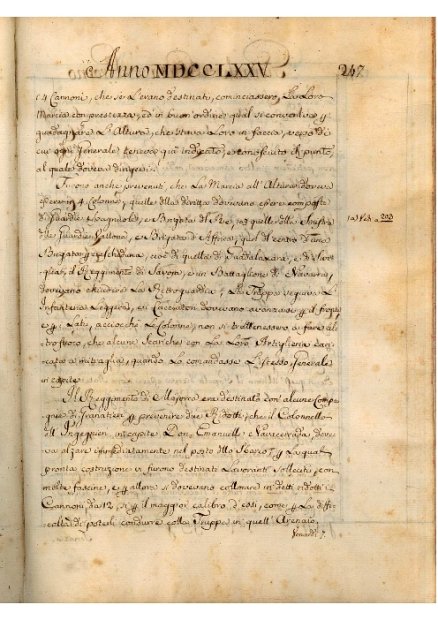 Anno MDCCLXXV. 247
14 Cannoni, che s'erano destinati, cominciassero la Loro
Marcia con prestezza, ed in buon ordine qual si conveniva p
guadagnare L'Altura, che stava Loro in faccia, verso di
cui ogni Generale teneva già indicato, e conosciuto il punto,
al quale doveva dirigersi.
Furono anche prevenuti, che La Marcia all'Altura doveva
essere in 4 Colonne, quelle della diritta dovevano essere composte
di Guardie Spagnole, e Brigata del Re, quelle della Sinistra
delle Guardie Vallone, e Brigata d'Affrica, quel del centro d'una
Brigata cioè di quella di Guadalaxara, e di
il Reggimento di Savoia, e un Battaglione di Navarra,
dovevano chiudere La Retroguardia; La Truppa
Infanteria Leggiera, ed i Cacciatori dovevano avanzarsi p il fronte
e p i Lati, acciocchè Le Colonne, non si trattenessero a fare al-
tro fuoco, che alcune Scariche con La Loro Artiglieria
a mitraglia, quando Lo comandasse L'istesso Generale
in capite.
Il Reggimento di Majorca era destinato con alcune Compa-
gnie di Granatieri p prevenire due Ridotti, che il Colonnello
Ingegneri Don Emanuelle Navacerrada, dove-
va alzare immediatamente nel posto dello Sbarco, p La qual
pronta costruzione vi furono destinati Lavoranti Solleciti, con
molte fascine, e p allora si dovevano collocare in detti ridotti 4
Cannoni da 12, e p il maggior calibro d'essi, come p La diffi-
coltà di poterli condurre colla Truppa in quell'Arenaio,
203